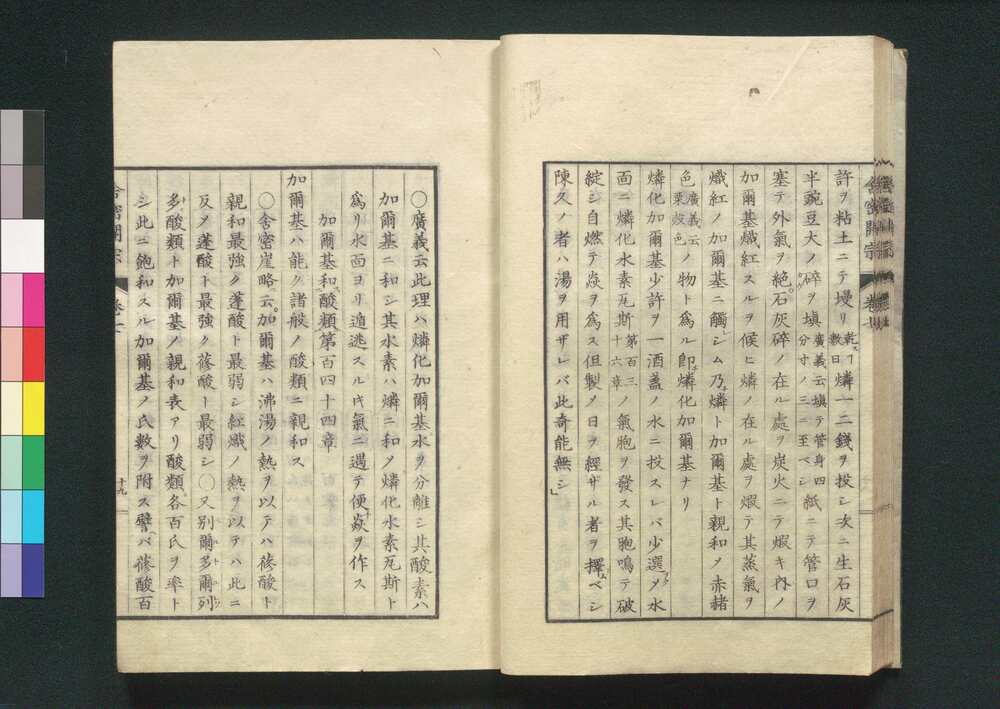 許ヲ粘土ニテ墁リ乾ス┐數日燐一二錢ヲ投シ次ニ生石灰
半豌豆大ノ碎ヲ塡廣義云塡テ管身四分寸ノ三ニ至ベシ紙ニテ管口ヲ
塞テ外氣ヲ絶石灰碎ノ在ル處ヲ炭火ニテ煆キ內ノ
加爾基熾紅スルヲ候ヒ燐ノ在ル處ヲ煆テ其蒸氣ヲ
熾紅ノ加爾基ニ觸シム乃燐ト加爾基ト親和メ赤赭
色廣義云栗殼色ノ物ト爲ル卽燐化加爾基ナリ
燐化加爾基少許ヲ一酒盞ノ水ニ投スレバ少選メ水
面ニ燐化水素瓦斯第百三十六章ノ氣胞ヲ發ス其胞鳴テ破
綻シ自燃テ焱ヲ爲ス但製メ日ヲ經ザル者ヲ擇ムベシ
陳久ノ者ハ湯ヲ用ザレバ此奇能無シ」
舍密開宗 卷七
○廣義云此理ハ燐化加爾基水ヲ分離シ其酸素ハ
加爾基ニ和シ其水素ハ燐ニ和メ燐化水素瓦斯ト
爲リ水面ヨリ遁逃スル氏氣ニ遇テ便焱ヲ作ス
加爾基和酸類第百四十四章
加爾基ハ能ク諸般ノ酸類ニ親和ス
○舍密崖略云加爾基ハ沸湯ノ熱ヲ以テハ蓚酸ト
親和最強ク蓬酸ト最弱シ紅熾ノ熱ヲ以テハ此ニ
反メ蓬酸ト最強ク蓚酸ト最弱シ○又別爾多爾列
多酸類ト加爾基ノ親和表アリ酸類各百氏ヲ率ト
シ此ニ飽和スル加爾基ノ氏數ヲ附ス譬バ蓚酸百
十九